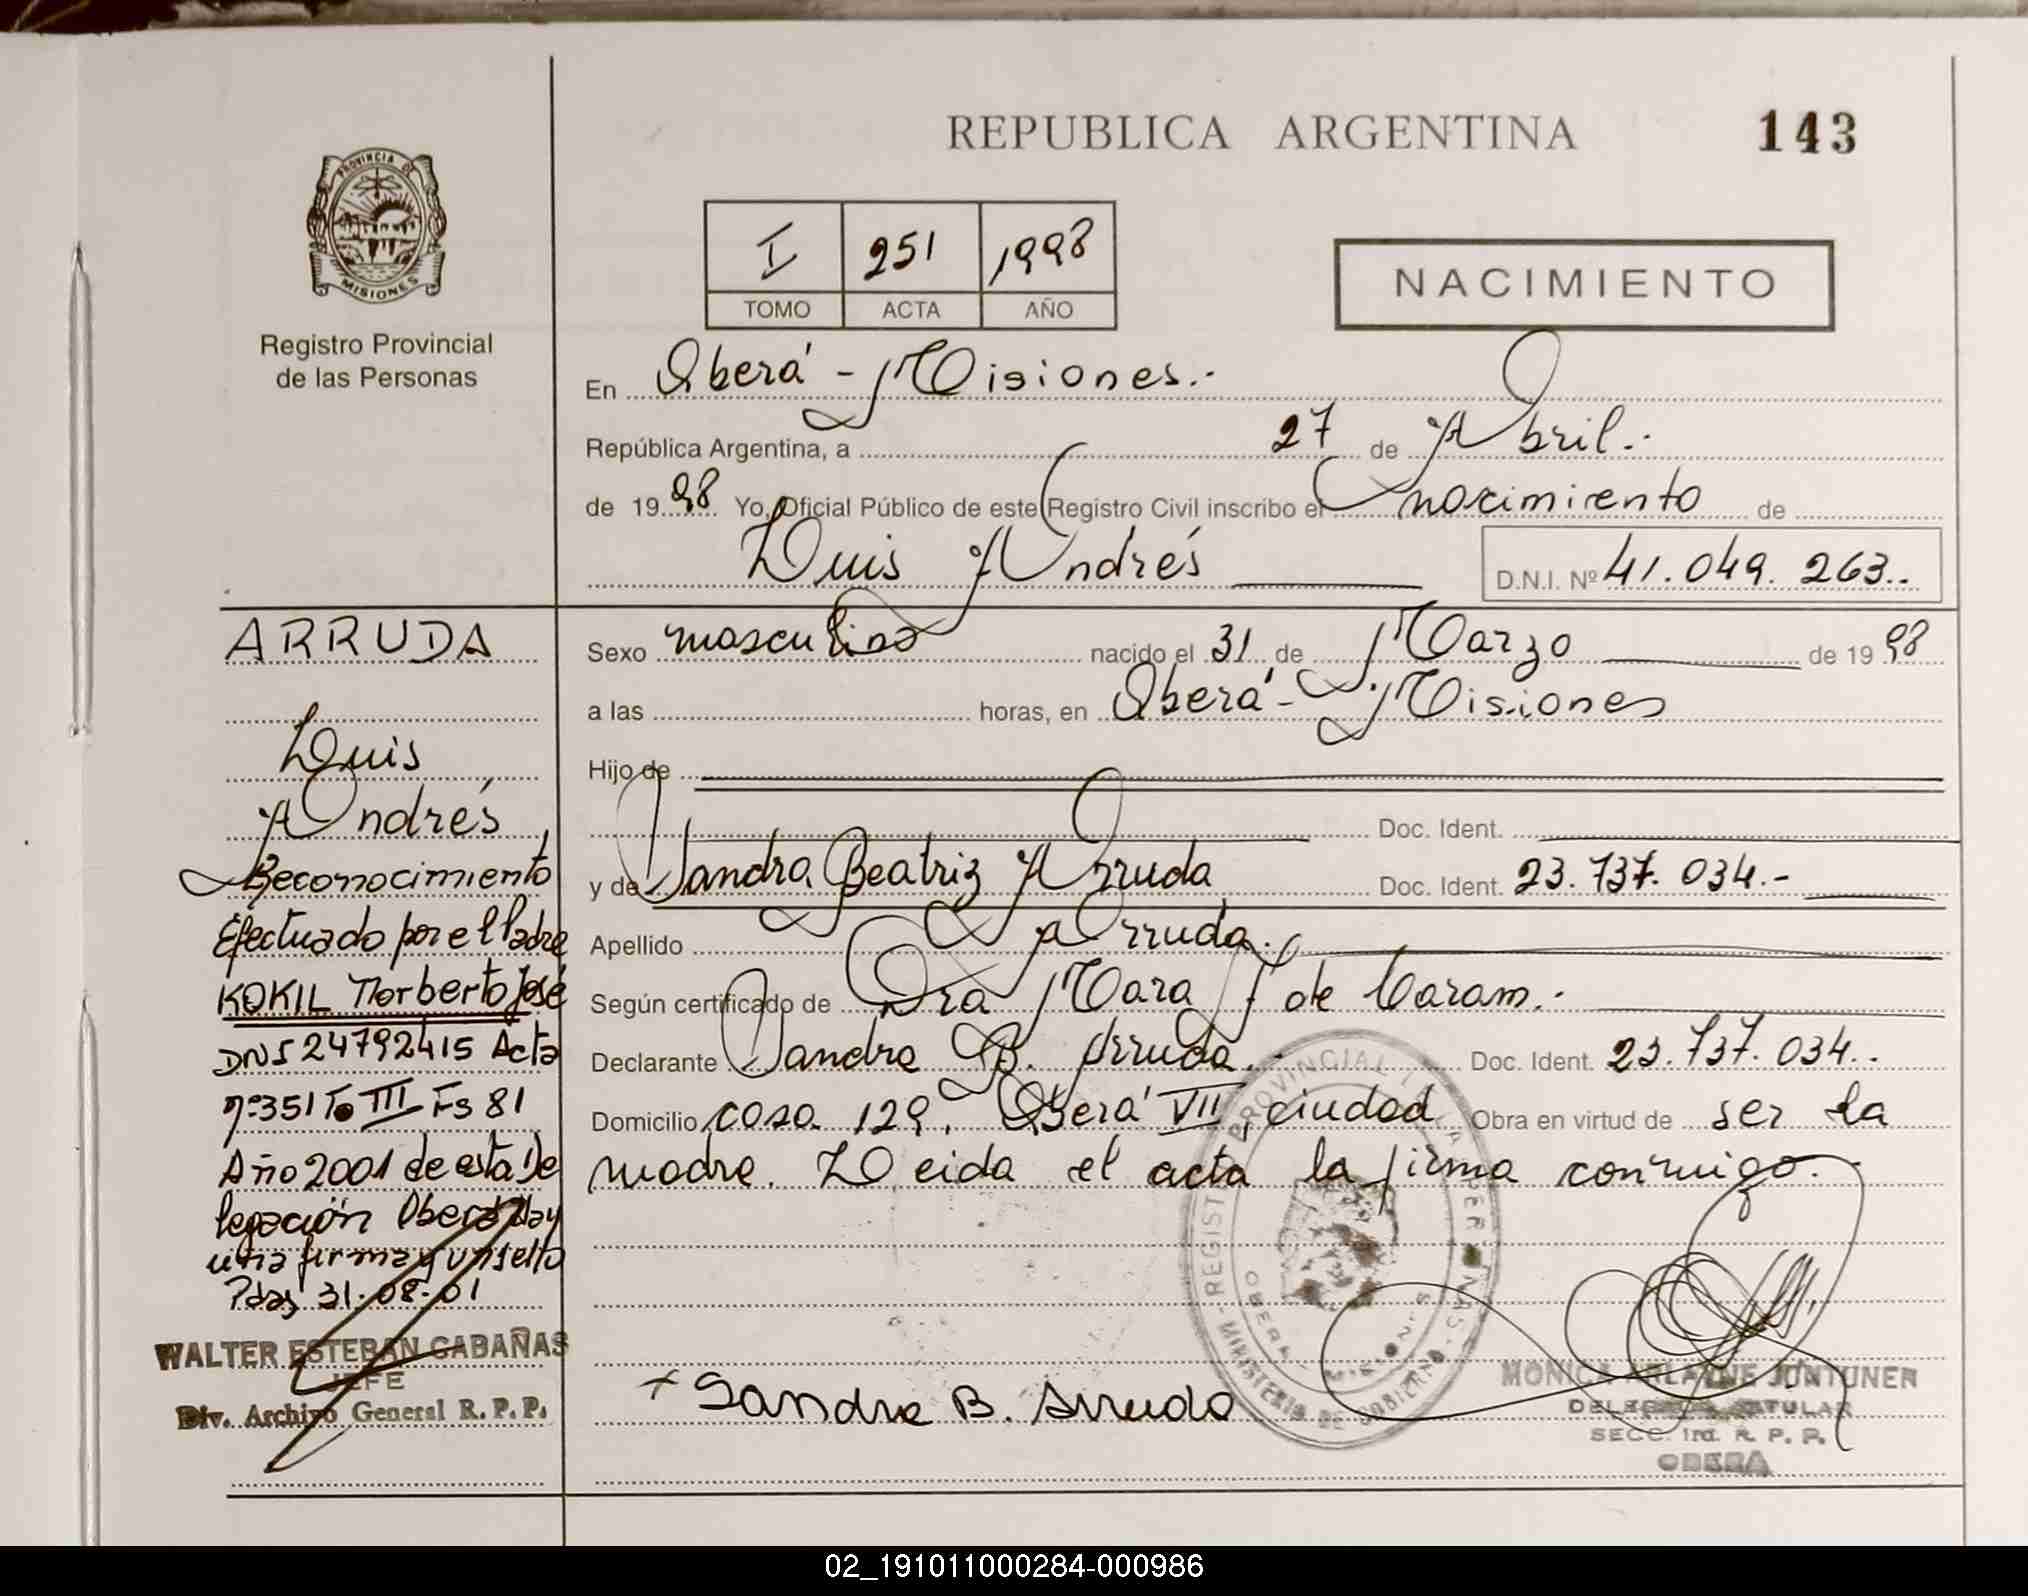 REPUBLICA ARGENTINA
143
PROVINCIA DE
MISIONES
Registro Provincial
de las Personas
I 251 1998
TOMO ACTA AÑO
NACIMIENTO
En Oberá - Misiones.-
República Argentina, a 27 de Abril.-
de 1998 Yo, Oficial Público de este Registro Civil inscribo el nacimiento de
Luis Andrés
D.N.I. Nº 41.049.263..
Sexo masculino nacido el 31 de Marzo de 1998
a las horas, en Oberá - Misiones
Hijo de
Doc. Ident.
y de Sandra Beatriz Arruda Doc. Ident. 23.737.034.-
Apellido Arruda.
Según certificado de Dra Mara J de Caram.-
Declarante Sandra B. Arruda.- Doc. Ident. 23.737.034..
Domicilio casa 129, Oberá VII, ciudad Obra en virtud de ser la
madre. Leida el acta la firma conmigo.-
+ Sandra B. Arruda
REGISTRO PROVINCIAL DE LAS PERSONAS
MINISTERIO DE GOBIERNO
OBERA MISIONES
MONICA ARLAINE JUNTUNEN
DELEGADA TITULAR
SECC. 1ra. R. P. P.
OBERA
ARRUDA
Luis
Andrés
Reconocimiento
Efectuado por el Padre
KOKIL Norberto José
DNI 24792415 Acta
nº351 Tº III Fs 81
Año 2001 de esta De
legación Oberá Hay
una firma y un sello
Pdas 31-08-01
WALTER ESTEBAN CABAÑAS
JEFE
Div. Archivo General R. P. P.
02_191011000284-000986